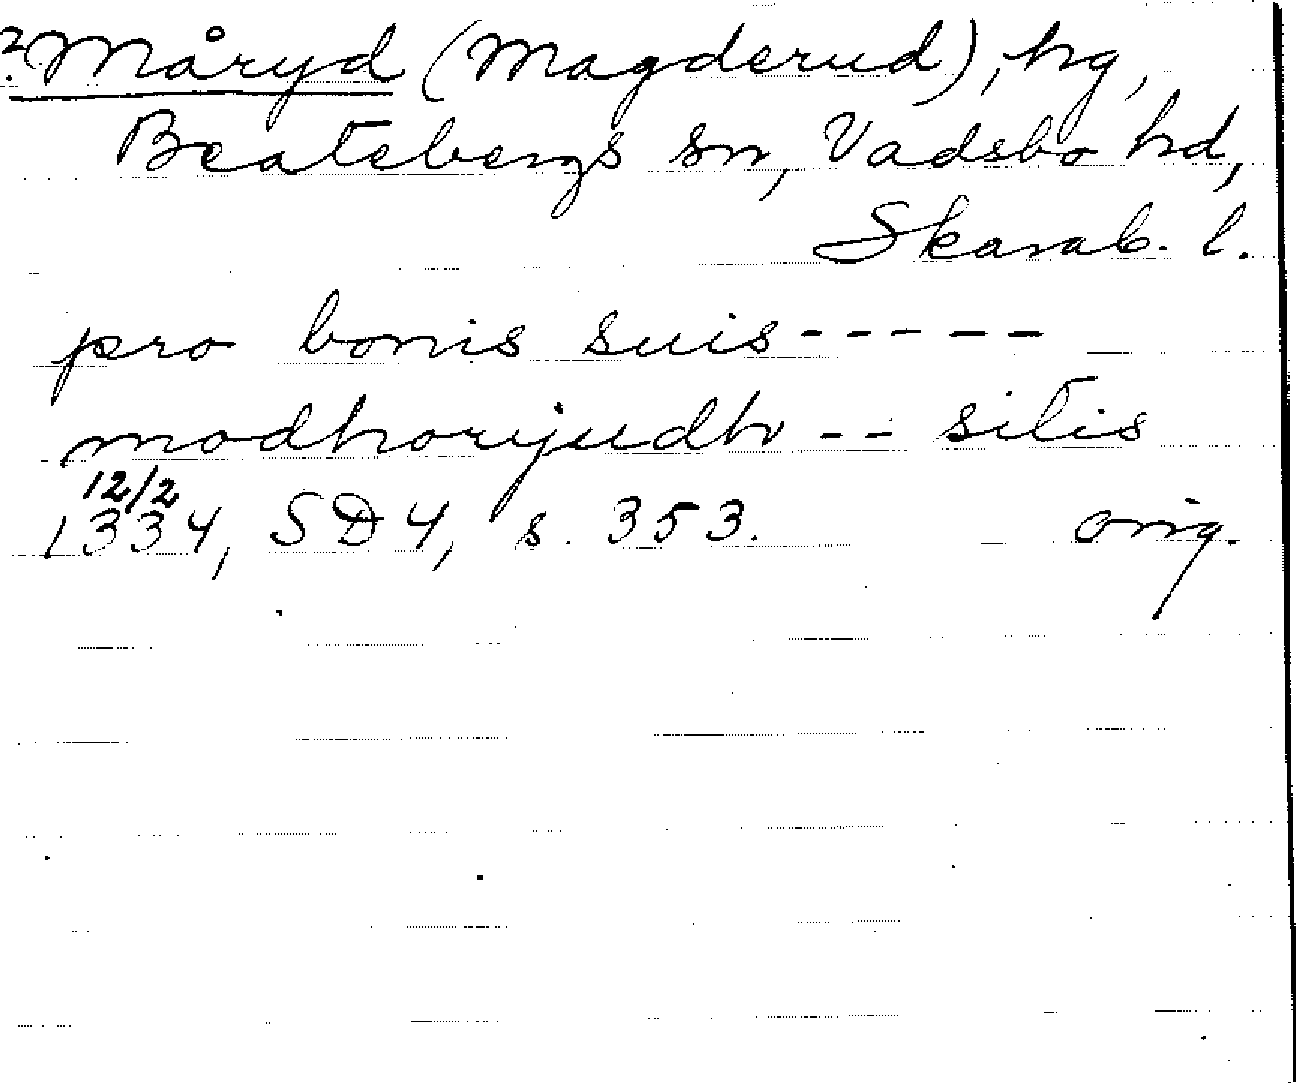 ? Måryd (Magderud), hg,
Beatebergs sn, Vadsbo hd,
Skarab. l.
pro bonis suis -----
modhorjudhr -- sitis
12/2
1334, SD4, s. 353. orig.